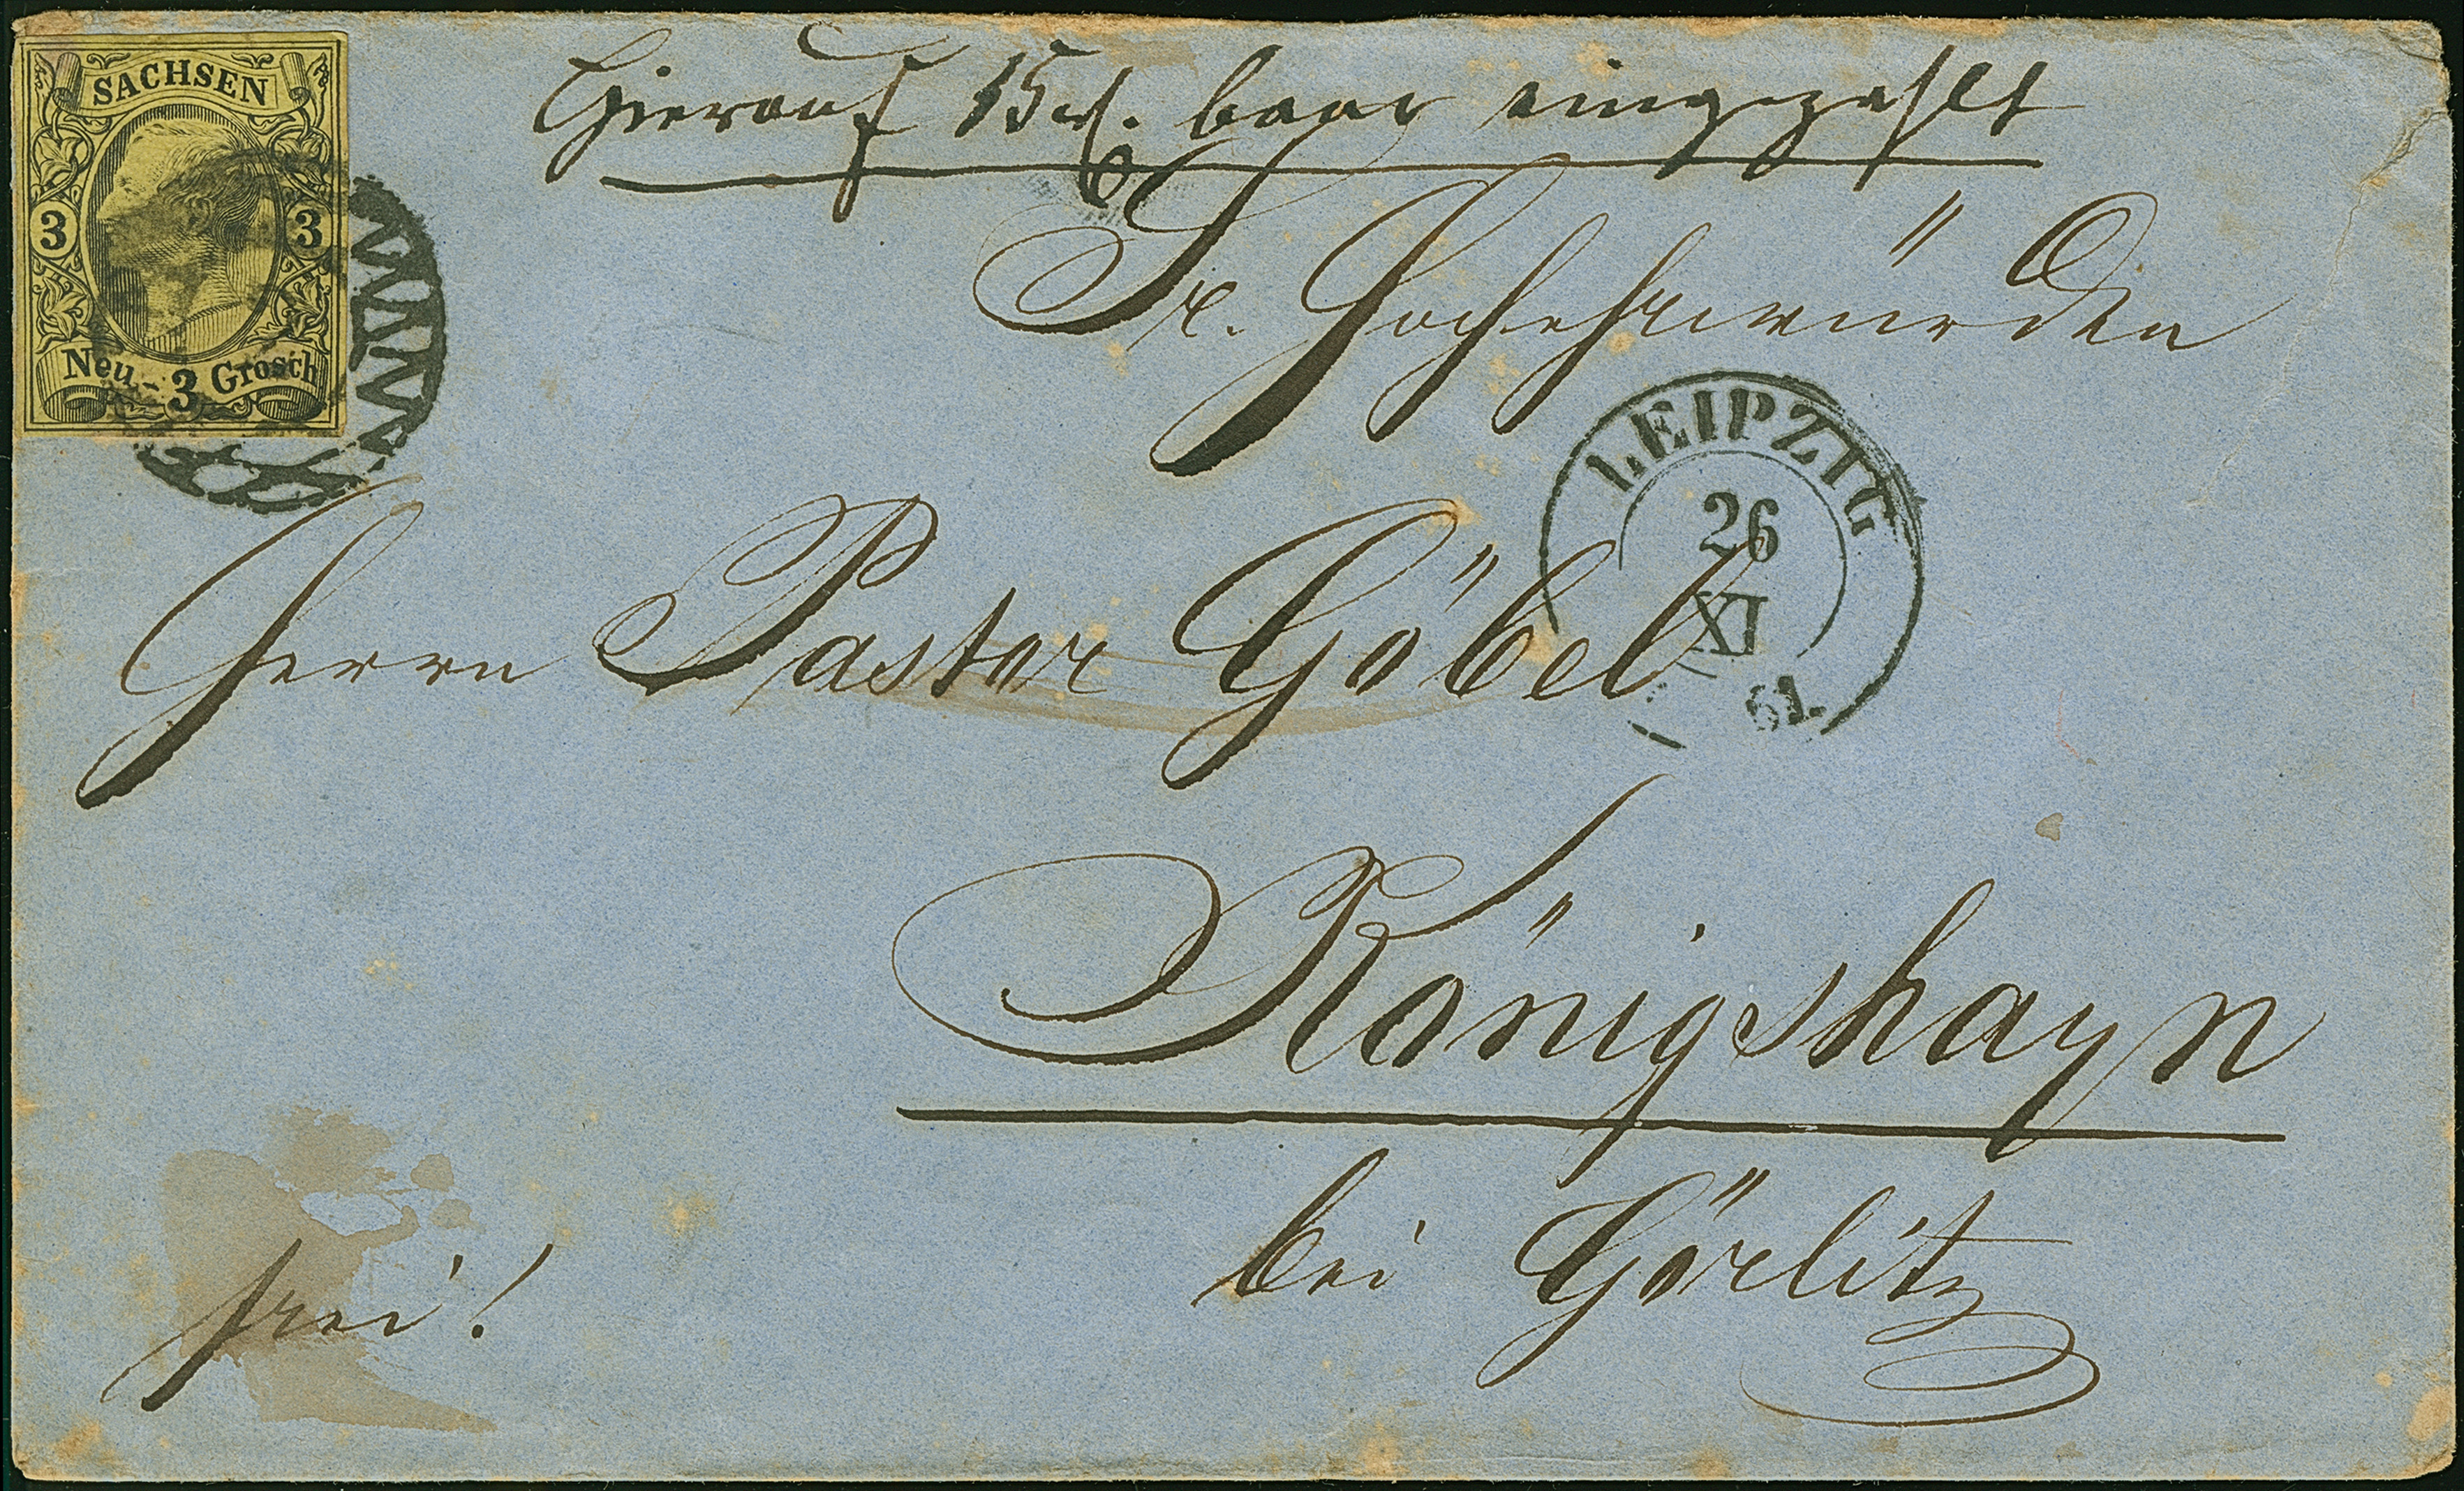 SACHSEN
3 3
Neu- 3 Grosch
Hierauf 15 baar eingezahlt
Sr. Hochehrwürden
LEIPZIG
26
XI
61.
Herrn Pastor Göbel
Königshayn
bei Görlitz
frei!